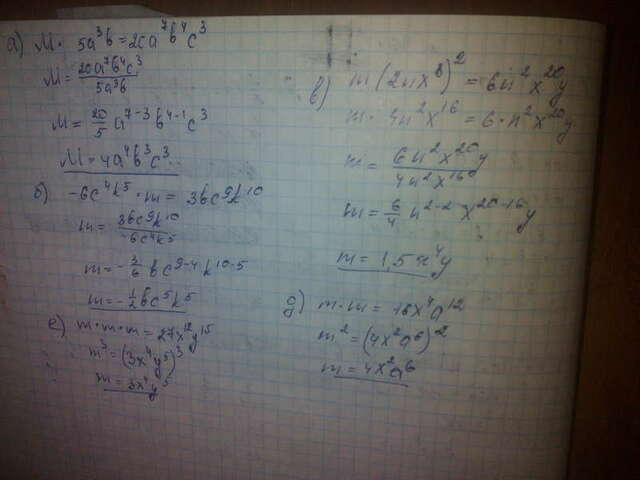 а) M · 5a³b = 20a⁷b⁴c³
M = 20a⁷b⁴c³ / 5a³b
M = 20/5 a⁷⁻³b⁴⁻¹c³
M = 4a⁴b³c³
б) -6c⁴k⁵ · m = 3bc⁹k¹⁰
m = 3bc⁹k¹⁰ / -6c⁴k⁵
m = -3/6 bc⁹⁻⁴k¹⁰⁻⁵
m = -1/2 bc⁵k⁵
е) m · m · m = 27x¹²y¹⁵
m³ = (3x⁴y⁵)³
m = 3x⁴y⁵
в) m(2nx⁸)² = 6n²x²⁰y
m · 4n²x¹⁶ = 6 · n²x²⁰y
m = 6n²x²⁰y / 4n²x¹⁶
m = 6/4 n²⁻² x²⁰⁻¹⁶y
m = 1,5x⁴y
д) m · m = 16x⁴a¹²
m² = (4x²a⁶)²
m = 4x²a⁶